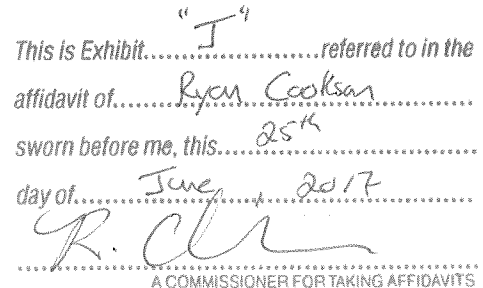 This is Exhibit "J" referred to in the
affidavit of Ryan Cookson
sworn before me, this 25th
day of June 2017
A COMMISSIONER FOR TAKING AFFIDAVITS